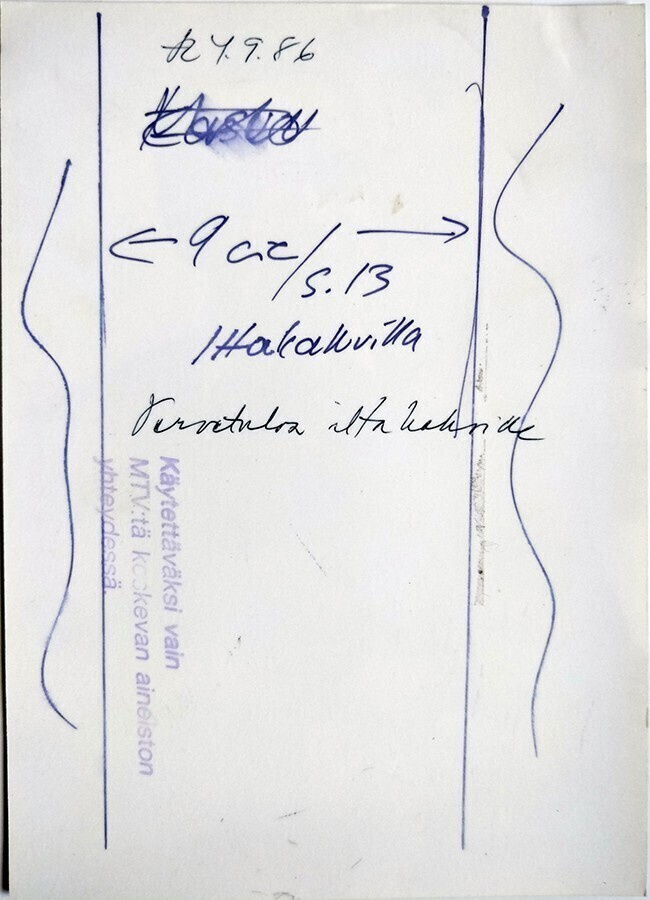 R 4.9.86
9 cic/
s. 13
Iltakahvilla
Tervetuloa iltakahville
Käytettäväksi vain
MTV:tä koskevan aineiston
yhteydessä.